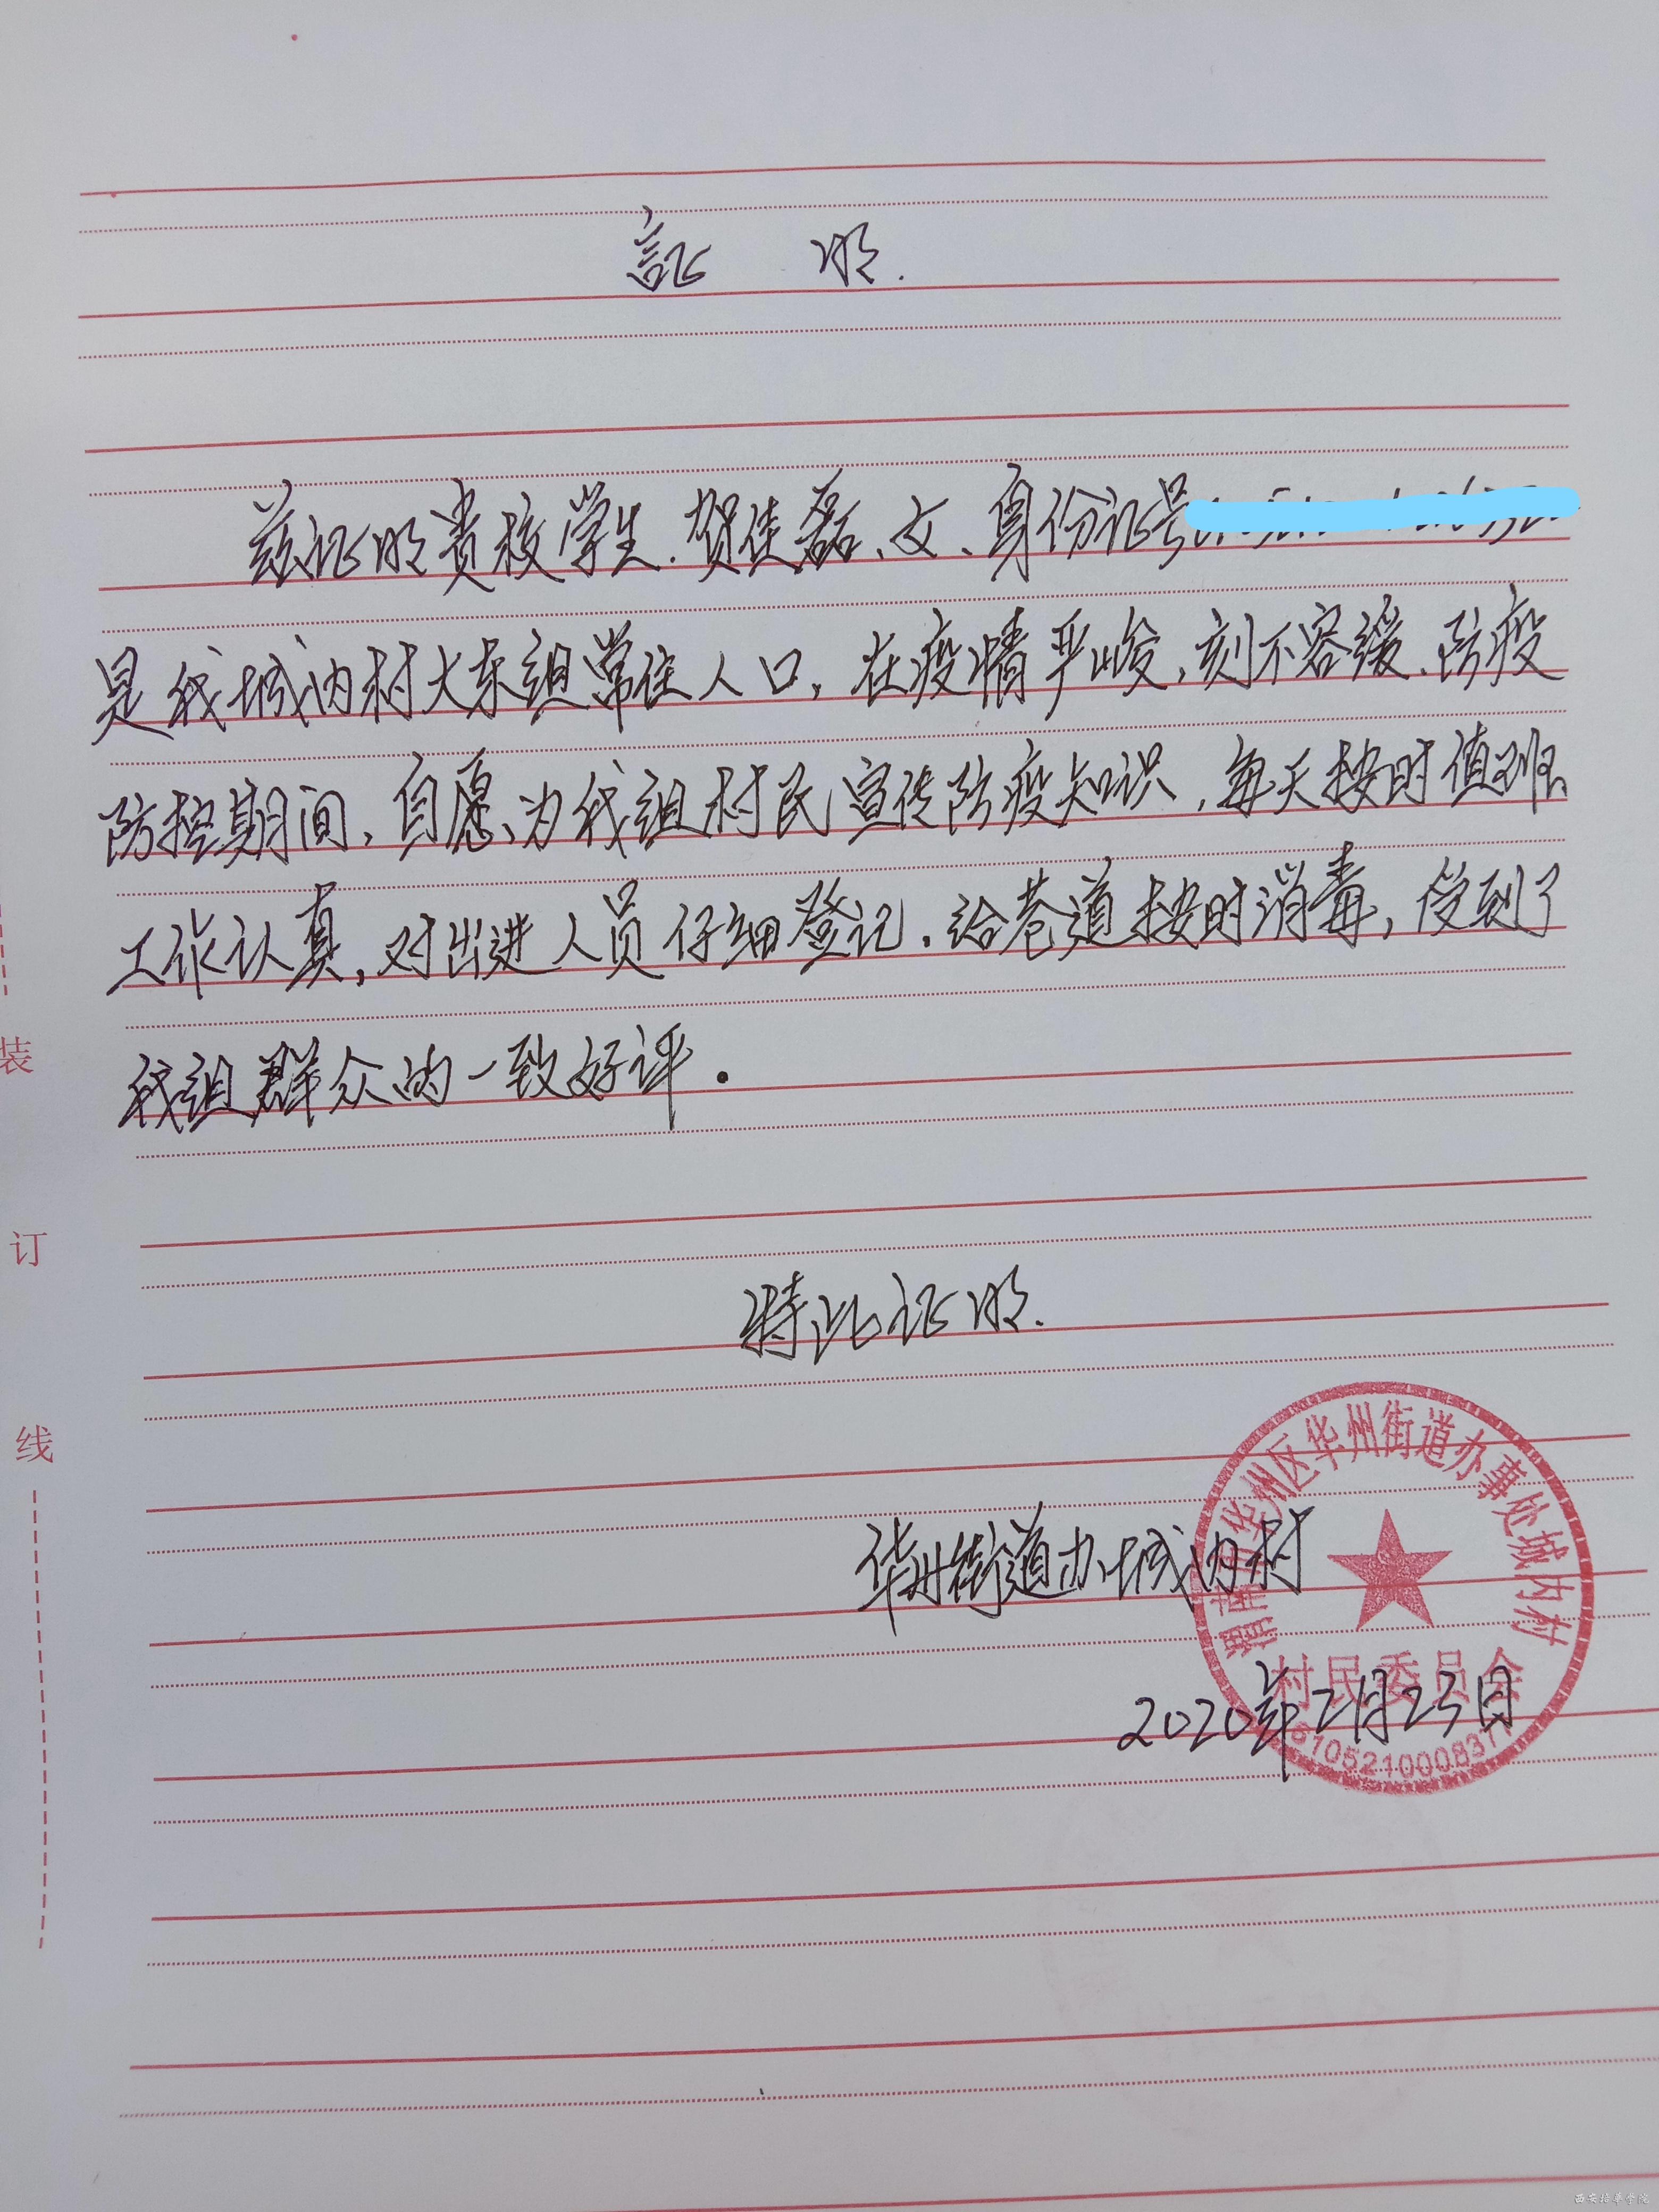 証 明.
兹证明贵校学生.贺佳磊、女、身份证号
是我城内村大东组常住人口，在疫情严峻，刻不容缓.防疫
防控期间，自愿、为我组村民宣传防疫知识，每天按时值班、
工作认真，对出进人员仔细登记.给巷道按时消毒，受到了
我组群众的一致好评.
特此证明.
华州街道办城内村
2020年2月23日
渭南华州区华州街道办事处城内村
村民委员会
装
订
线
西安培华学院